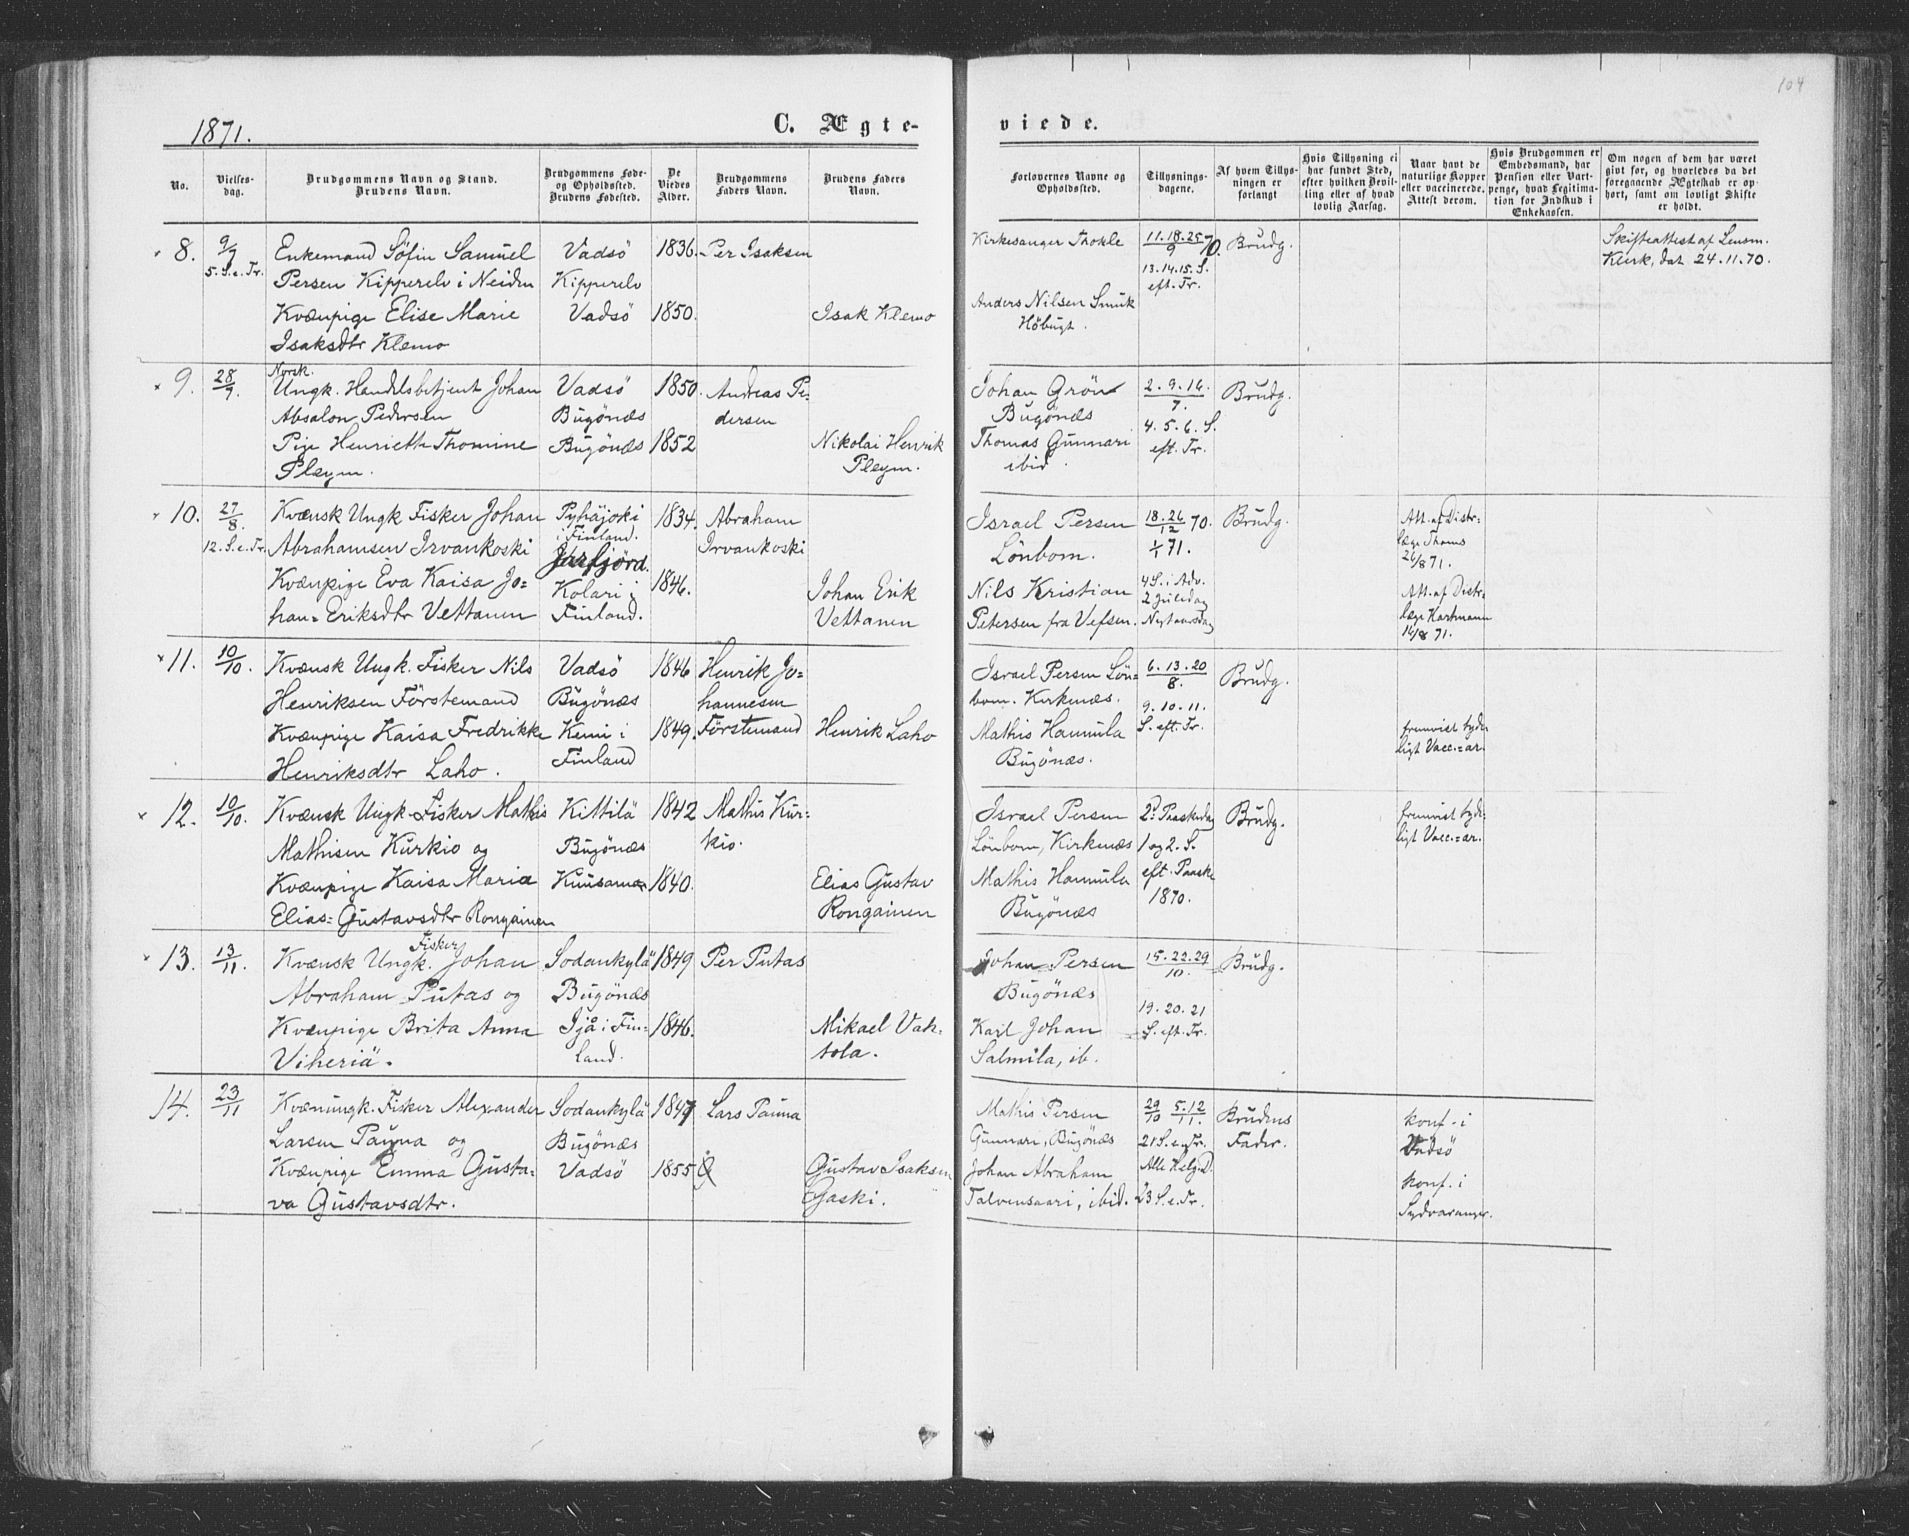 104
1871.
C. Ægte-
viede.
No.
Vielses-
dag.
Brudgommens Navn og Stand.
Brudens Navn.
Brudgommens Føde-
og Opholdssted.
Brudens Fødested.
De
Viedes
Alder.
Brudgommens
Faders Navn.
Brudens Faders
Navn.
Forlovernes Navne og
Opholdssted.
Tillysnings-
dagene.
Af hvem Tillys-
ningen er
forlangt
Hvis Tillysning ei
har fundet Sted,
efter hvilken Bevil-
ling eller af hvad
lovlig Aarsag.
Naar havt de
naturlige Kopper
eller vaccinerede.
Attest derom.
Hvis Brudgommen er
Embedsmand, har
Pension eller Vart-
penge, hvad Legitima-
tion for Indskud i
Enkekassen.
Om nogen af dem har været
gift for, og hvorledes da det
foregaaende Ægteskab er op-
hørt, samt om lovligt Skifte
er holdt.
8.
9/7
5. S. e. Tr.
Enkemand Söfin Samuel
Persen Kipperelv i Neiden
Kvænpige Elise Marie
Isaksdtr Klemo
Vadsö
Kipperelv
Vadsö
1836.
1850.
Per Isaksen
Isak Klemo
Kirkesanger Thokle
Anders Nilsen Smuk
Höbugt.
11.18.25/9 70.
13.14.15. S.
eft. Tr.
Brudg.
Skifteattest af Lensm.
Klerk, dat 24.11.70.
9.
28/9.
Norsk.
Ungk. Handelsbetjent Johan
Absalon Pedersen
Pige Henriette Thomine
Pleym.
Vadsö
Bugönæs
Bugönæs
1850.
1852
Andreas Pe-
dersen
Nikolai Henrik
Pleym.
Johan Grön
Bugönæs
Thomas Gunnari
ibid.
2. 9. 16./7.
4. 5. 6. S.
eft. Tr.
Brudg.
10.
27/8.
12. S. e. Tr.
Kvænsk Ungk Fisker Johan
Abrahamsen Irvankoski
Kvænpige Eva Kaisa Jo-
han-Eriksdtr Vettanen
Pyhäjoki
i Finland.
Jarfjörd.
Kolari i
Finland.
1834.
1846.
Abraham
Irvankoski
Johan Erik
Vettanen
Israel Persen
Lönbom.
Nils Kristian
Petersen fra Vefsen.
18.26/12 70.
1/1 71.
4 S. i Adv.
2 Juledag
Nytaarsdag
Brudg.
Att. af Distr-
læge Thoms
26/8 71.
Att. af Distr-
læge Hartmann
16/8 71.
11.
10/10.
Kvænsk Ungk. Fisker Nils
Henriksen Förstemand
Kvænpige Kaisa Fredrikke
Henriksdtr Laho.
Vadsö
Bugönæs
Kemi i
Finland
1846
1849.
Henrik Jo-
hannesen
Förstemand
Henrik Laho
Israel Persen Lön-
bom. Kirkenæs.
Mathis Hannula
Bugönæs.
6. 13. 20/8.
9. 10. 11.
S. eft. Tr.
Brudg.
fremvist tyde-
ligt Vacc.-ar.
12.
10/10.
Kvænsk Ungk. Fisker Mathis
Mathisen Kurkio og
Kvænpige Kaisa Maria
Elias-Gustavsdtr Rongainen
Kittilä
Bugönæs
Kuusamo
1842
1840.
Mathis Kur-
kio.
Elias Gustav
Rongainen
Israel Persen
Lönbom, Kirkenæs
Mathis Hannula
Bugönæs
2. Paaskedag
1 og 2. S.
eft. Paaske
1870.
Brudg.
fremvist tyde-
ligt Vacc.-ar.
13.
13/11.
Fisker
Kvænsk Ungk. Johan
Abraham Putas og
Kvænpige Brita Anna
Viheriä.
Sodankylä
Bugönæs
Ijå i Fin-
land.
1849
1846.
Per Putas
Mikael Vak-
tola.
Johan Persen
Bugönæs
Karl Johan
Salmila, ib.
15. 22. 29/10.
19. 20. 21
S. eft. Tr.
Brudg.
14.
23/11
Kvænungk. Fisker Alexander
Larsen Pauna og
Kvænpige Emma Gusta-
va Gustavsdtr.
Sodankylä
Bugönæs
Vadsö
1847
1855
Lars Pauna
Gustav Isaksen
Gaski.
Mathis Persen
Gunnari, Bugönæs
Johan Abraham
Talvensaari, ibid.
29/10 5.12/11.
21 S. e. Tr.
Alle Helg. D.
23 S. e. Tr.
Brudens
Fader.
konf. i
Vadsö
konf. i
Sydvaranger.